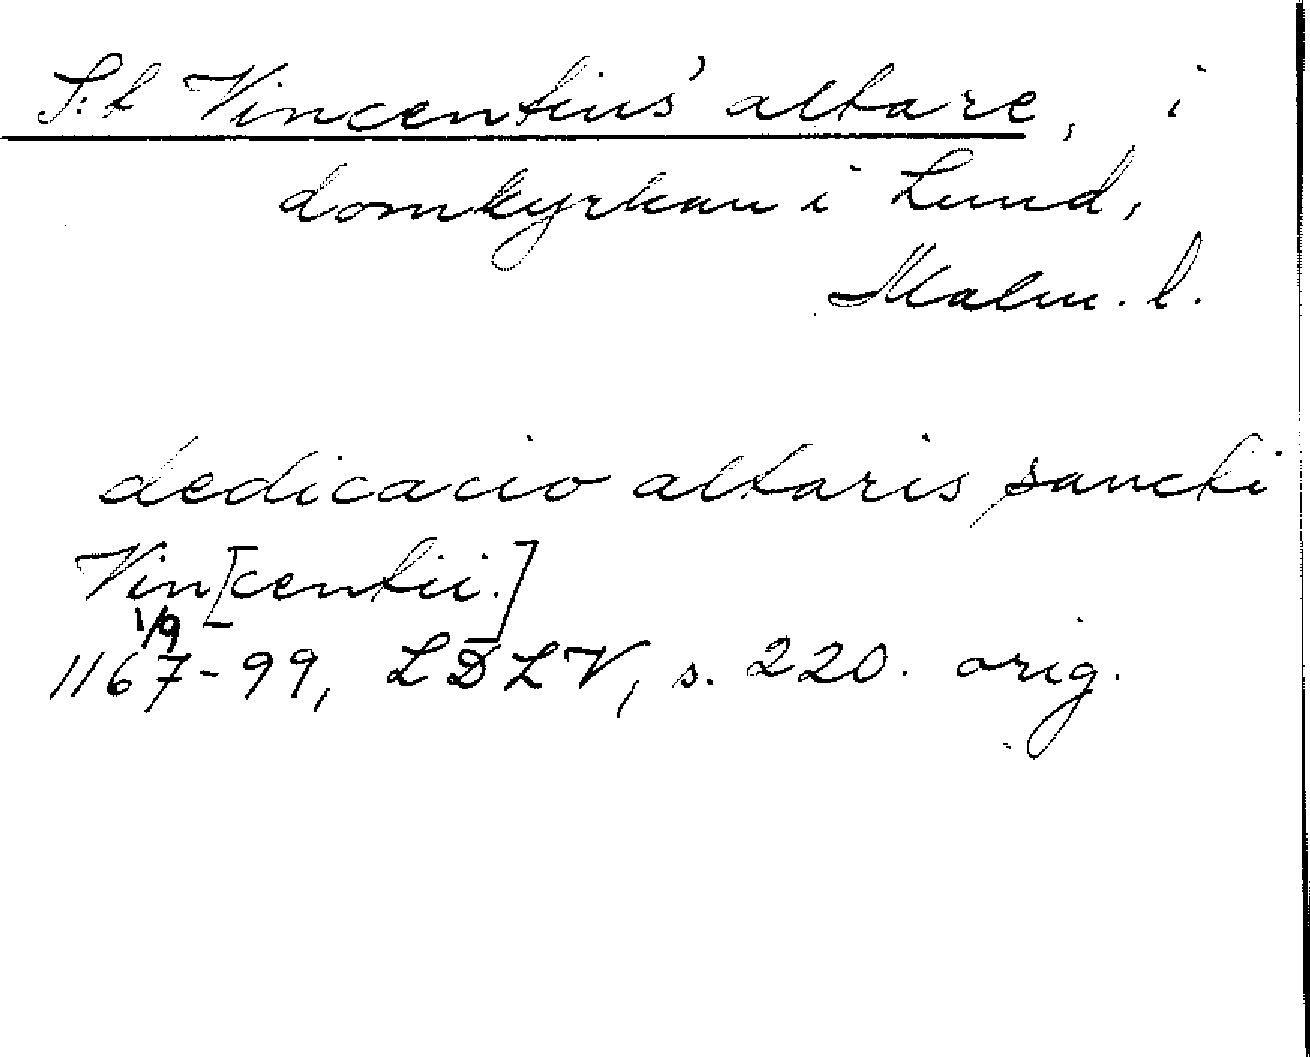 S:t Vincentius' altare, i
domkyrkan i Lund,
Malm. l.
dedicacio altaris sancti
Vin[centii.]
1/9
1167-99, LDLV, s. 220. orig.